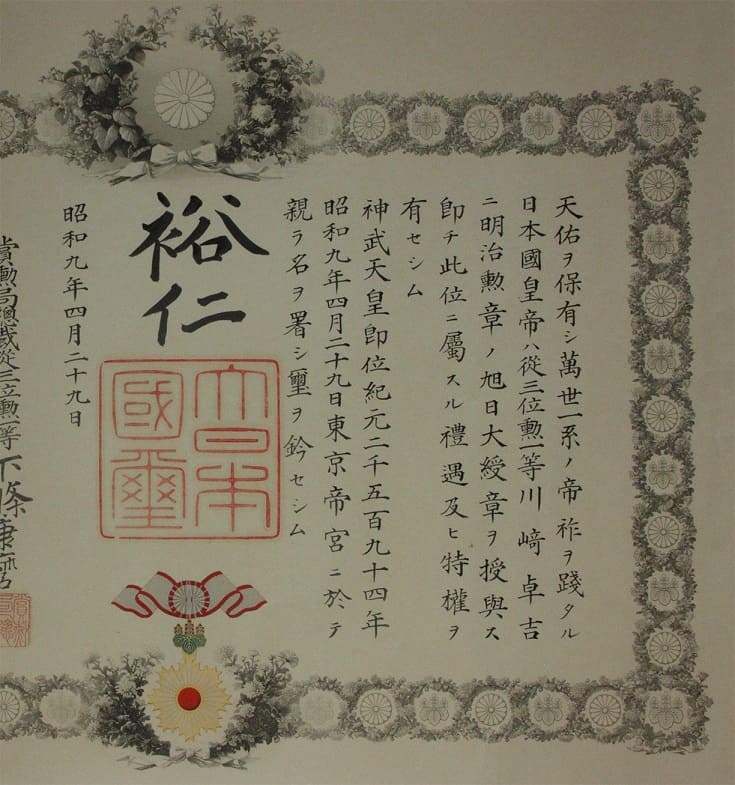 天佑ヲ保有シ萬世一系ノ帝祚ヲ踐タル
日本國皇帝ハ從三位勲一等川﨑卓吉
ニ明治勲章ノ旭日大綬章ヲ授與ス
即チ此位ニ屬スル禮遇及ヒ特權ヲ
有セシム
神武天皇即位紀元二千五百九十四年
昭和九年四月二十九日東京帝宮ニ於テ
親ラ名ヲ署シ璽ヲ鈐セシム
裕仁
大日本國璽
昭和九年四月二十九日
賞勲局總裁從三位勲一等下條康麿